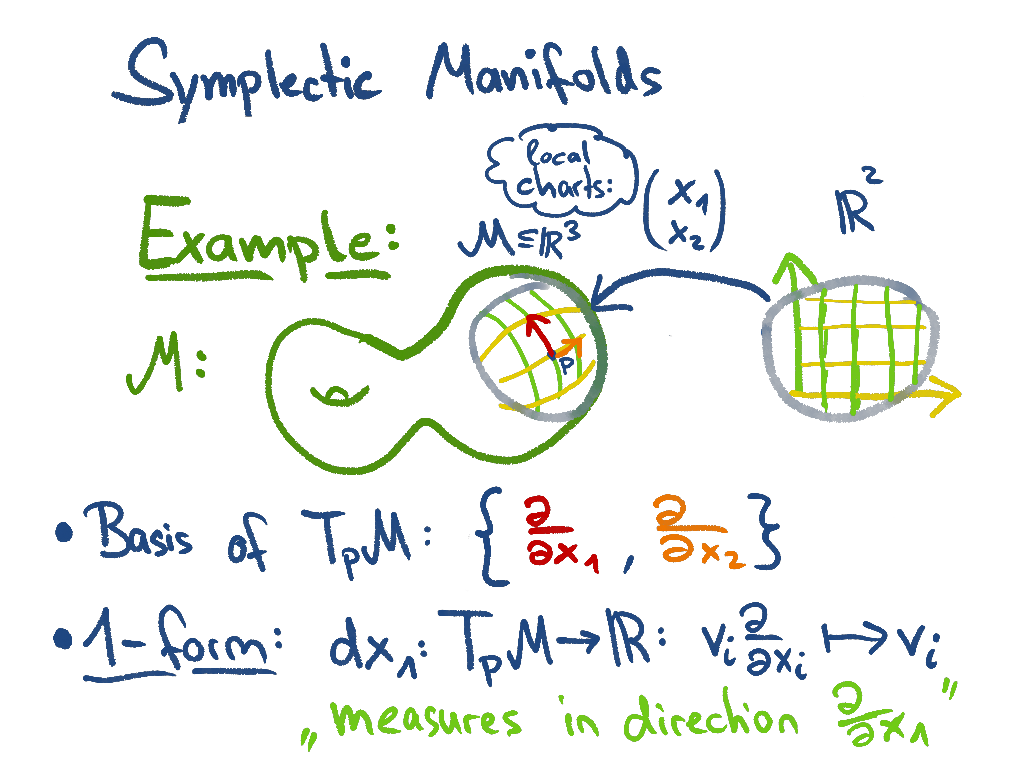 Symplectic Manifolds
local
charts:
(x₁
x₂)
ℝ²
Example:
M ⊆ ℝ³
M:
p
• Basis of TₚM: { ∂/∂x₁ , ∂/∂x₂ }
• 1-form: dx₁: TₚM → ℝ: vᵢ ∂/∂xᵢ ↦ vᵢ
„measures in direction ∂/∂x₁"